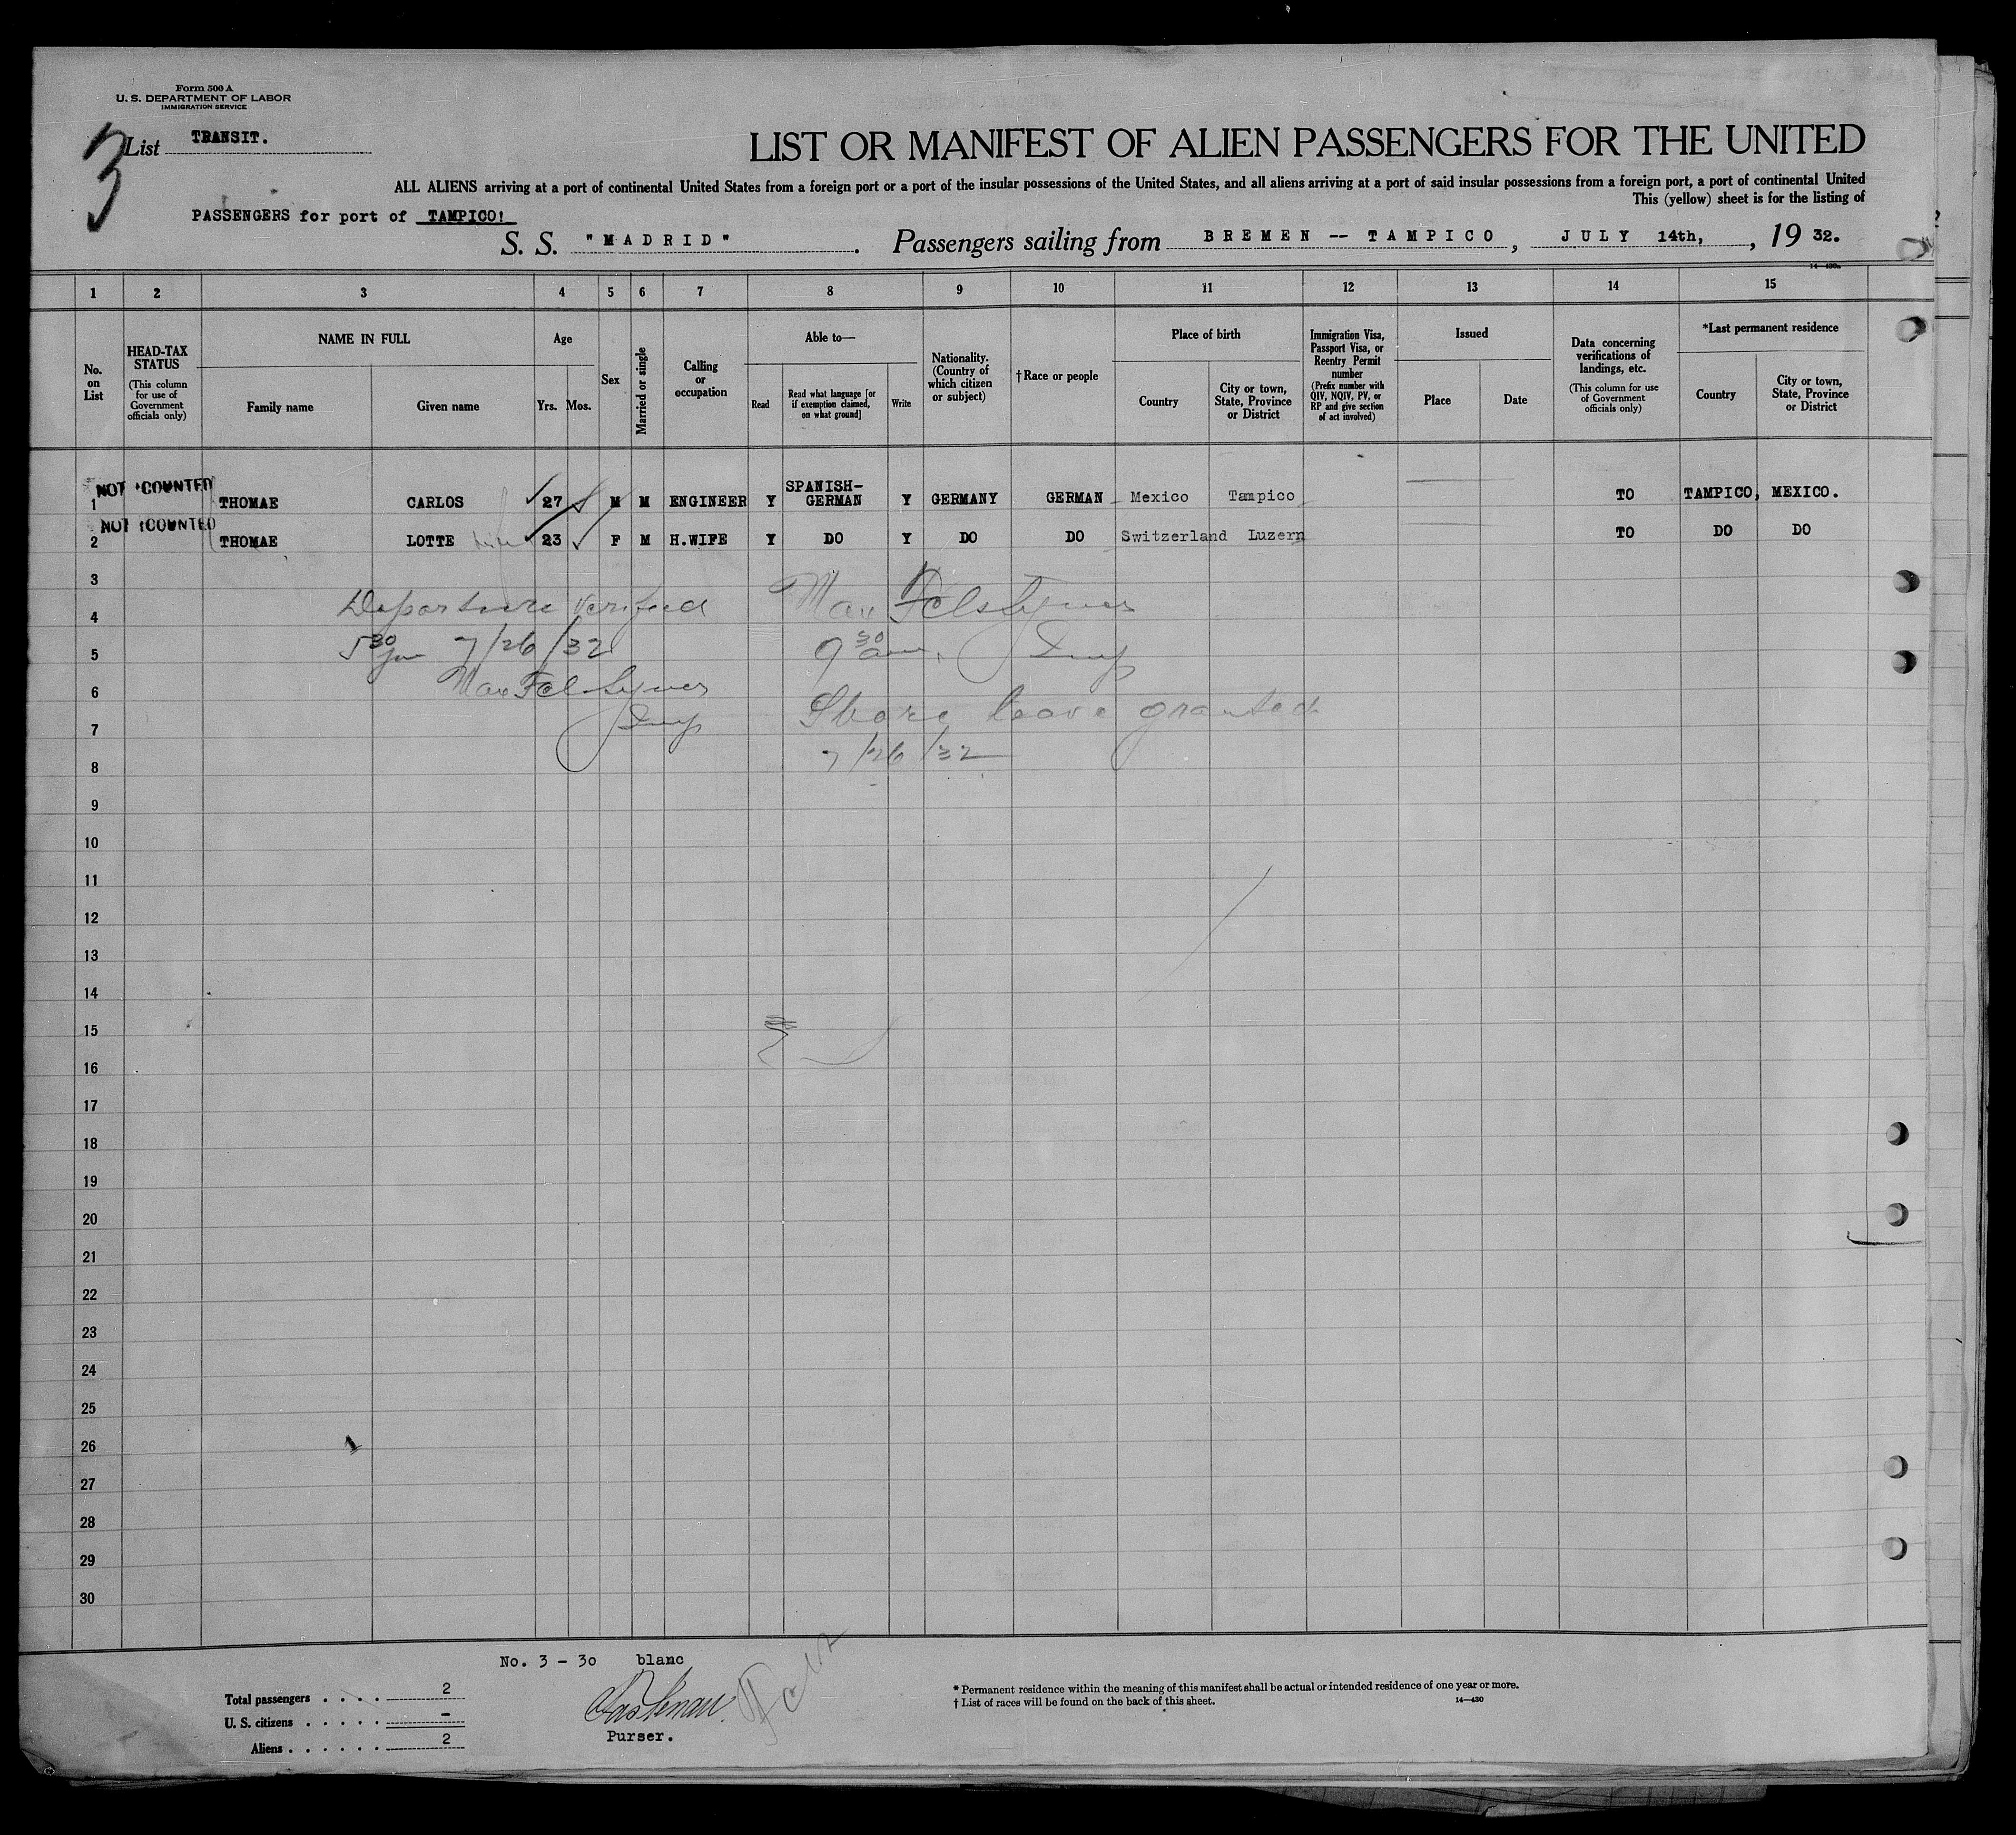 Form 500 A
U. S. DEPARTMENT OF LABOR
IMMIGRATION SERVICE
3
List TRANSIT.
LIST OR MANIFEST OF ALIEN PASSENGERS FOR THE UNITED
ALL ALIENS arriving at a port of continental United States from a foreign port or a port of the insular possessions of the United States, and all aliens arriving at a port of said insular possessions from a foreign port, a port of continental United
This (yellow) sheet is for the listing of
PASSENGERS for port of TAMPICO!
S. S. "MADRID". Passengers sailing from BREMEN -- TAMPICO, JULY 14th, , 19 32.
14-430a
1 2 3 4 5 6 7 8 9 10 11 12 13 14 15
No. on List
HEAD-TAX STATUS
(This column for use of Government officials only)
NAME IN FULL
Family name
Given name
Age
Yrs. Mos.
Sex
Married or single
Calling or occupation
Able to—
Read
Read what language [or if exemption claimed, on what ground]
Write
Nationality. (Country of which citizen or subject)
†Race or people
Place of birth
Country
City or town, State, Province or District
Immigration Visa, Passport Visa, or Reentry Permit number
(Prefix number with QIV, NQIV, PV, or RP and give section of act involved)
Issued
Place
Date
Data concerning verifications of landings, etc.
(This column for use of Government officials only)
*Last permanent residence
Country
City or town, State, Province or District
NOT COUNTED
1 THOMAE CARLOS 27 M M ENGINEER Y SPANISH-GERMAN Y GERMANY GERMAN Mexico Tampico TO TAMPICO, MEXICO.
NOT COUNTED
2 THOMAE LOTTE 23 F M H.WIFE Y DO Y DO DO Switzerland Luzern TO DO DO
3
4 Departure verified Max
5 5 30 pm 7/26/32 9 30 am. Insp
6 Max
7 Insp Shore leave granted
8 7/26/32
9
10
11
12
13
14
15
16
17
18
19
20
21
22
23
24
25
26
27
28
29
30
No. 3 - 30 blanc
Total passengers . . . . 2
U. S. citizens . . . . . -
Aliens . . . . . . 2
Purser.
* Permanent residence within the meaning of this manifest shall be actual or intended residence of one year or more.
† List of races will be found on the back of this sheet.
14—430